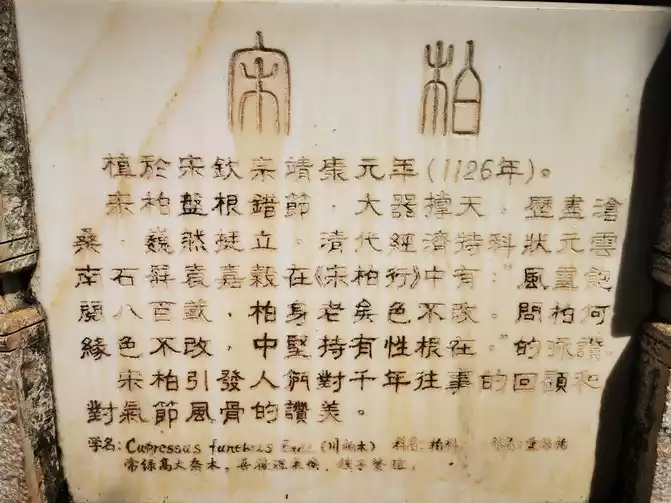 宋柏
植於宋欽宗靖康元年(1126年)。
宋柏盤根錯節，大器撐天，歷盡滄
桑，巍然挺立。清代經濟特科狀元雲
南石屏袁嘉穀在《宋柏行》中有：“風霜飽
閱八百載，柏身老矣色不改。問柏何
緣色不改，中堅持有性根在。”的詠讚。
宋柏引發人們對千年往事的回顧和
對氣節風骨的讚美。
学名：Cupressus funebris Endl (川柏木) 科名：柏科
常绿高大乔木